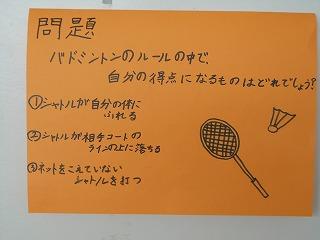 問題
バドミントンのルールの中で、
自分の得点になるものはどれでしょう?
①シャトルが自分の体に
ふれる
②シャトルが相手コートの
ラインの上に落ちる
③ネットをこえていない
シャトルを打つ